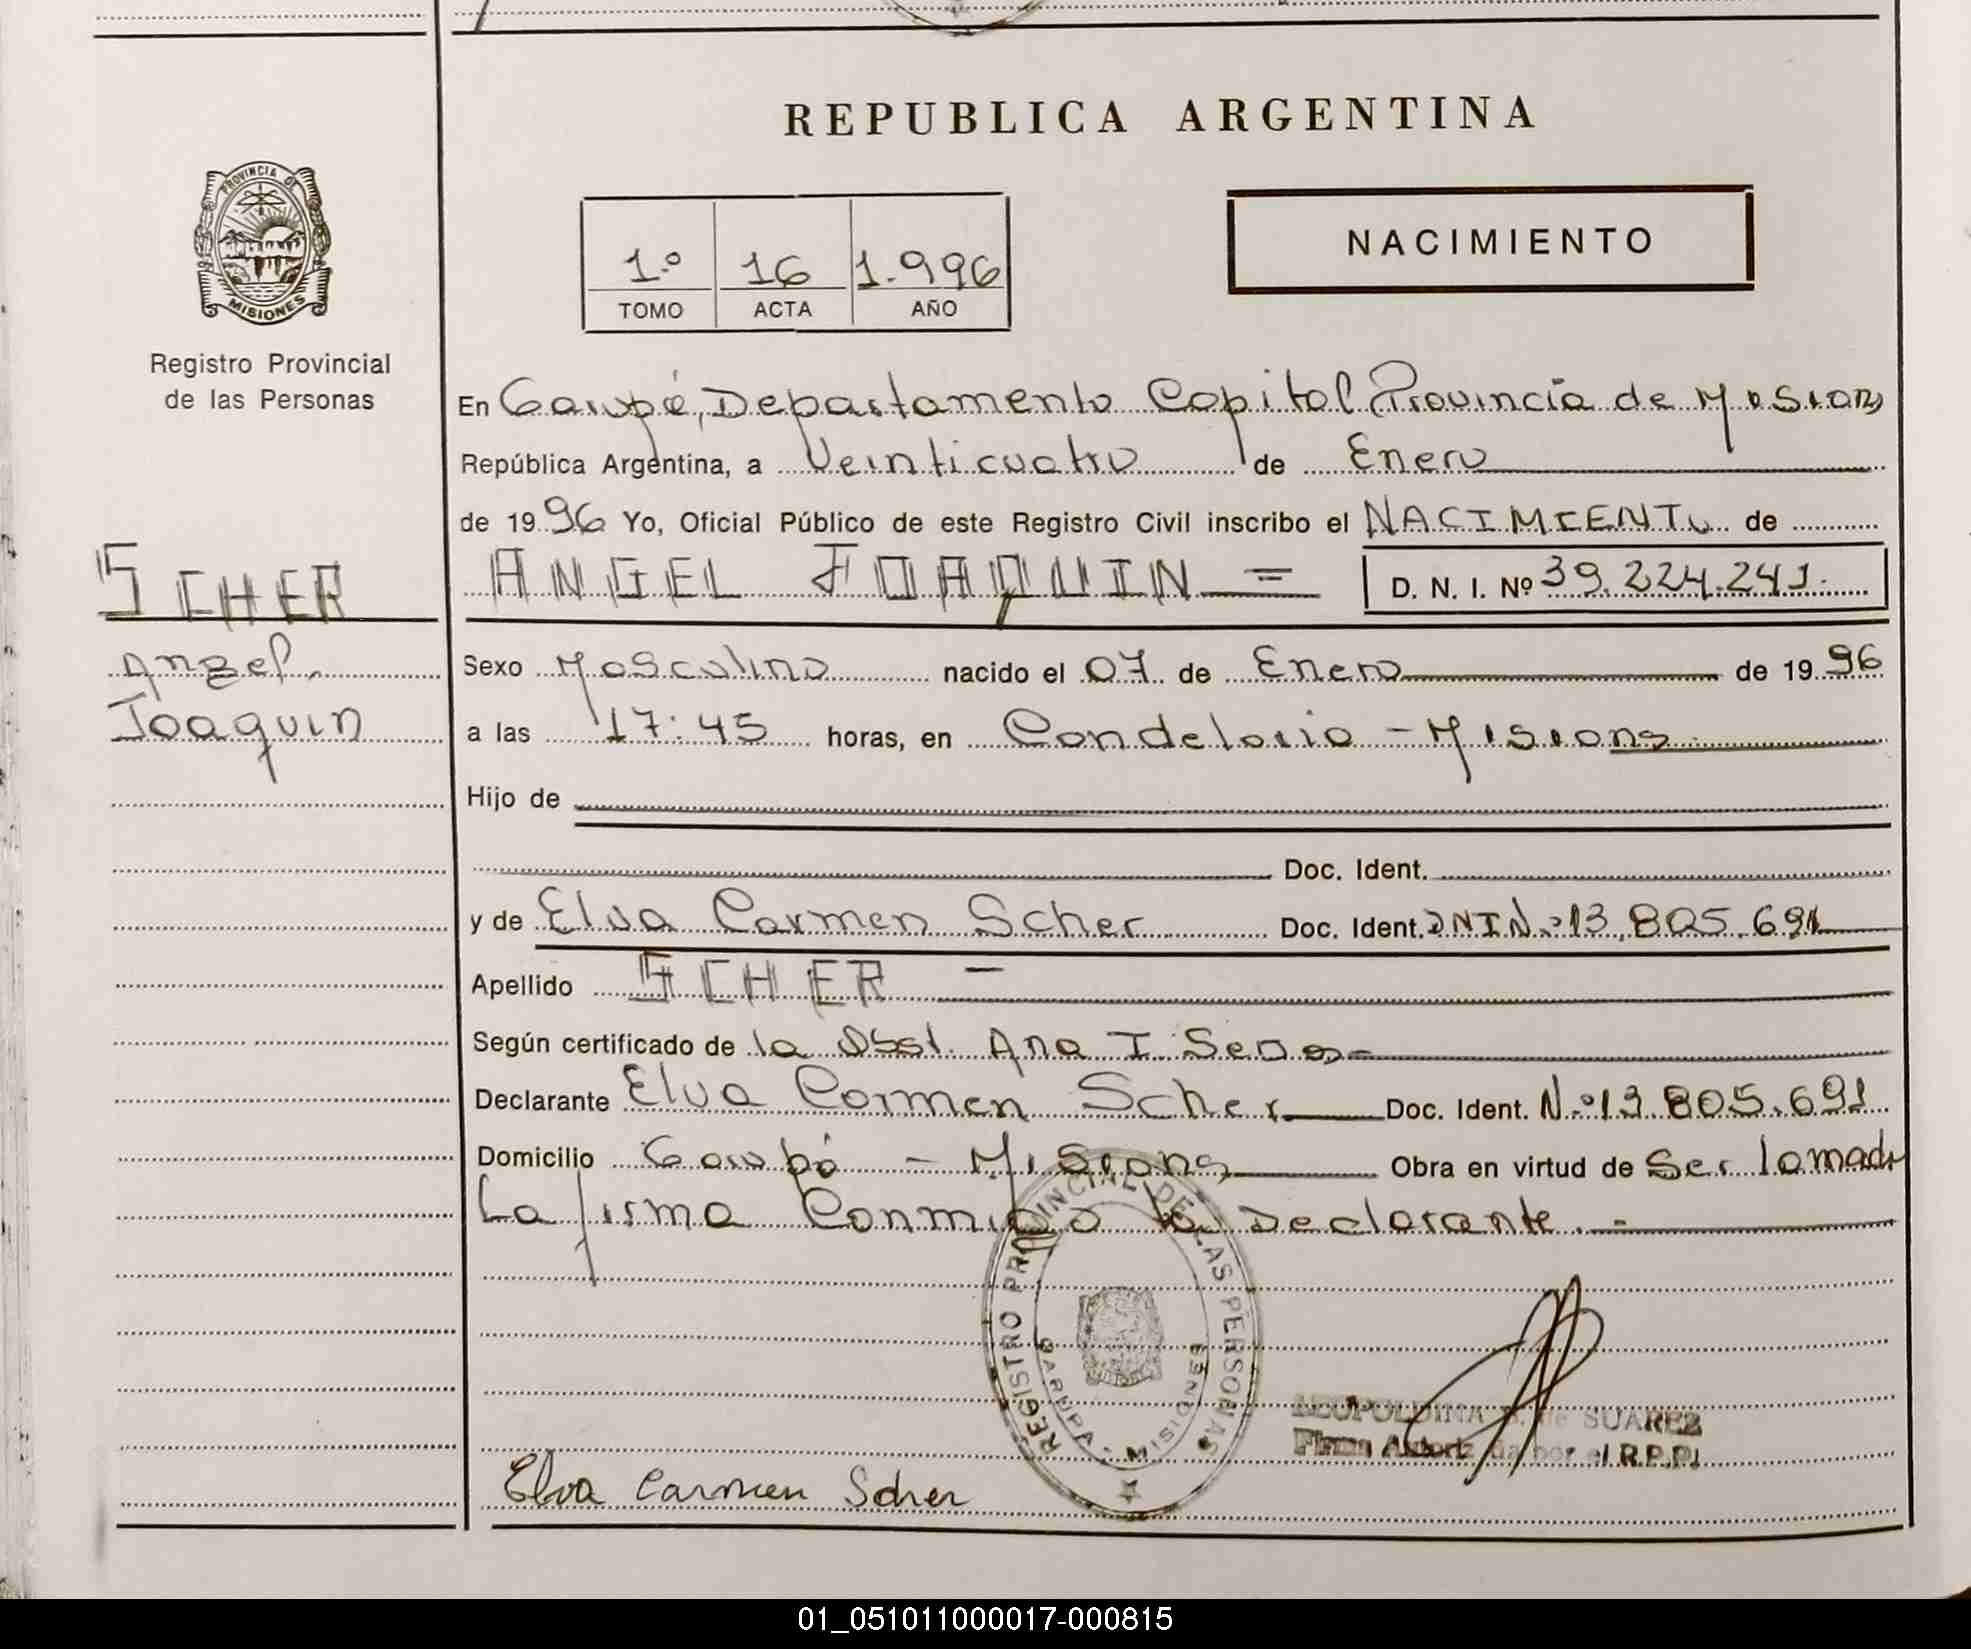 REPUBLICA ARGENTINA
PROVINCIA DE
MISIONES
Registro Provincial
de las Personas
1.º 16 1.996
TOMO ACTA AÑO
NACIMIENTO
En Garupá, Departamento Capital Provincia de Misiones
República Argentina, a Veinticuatro de Enero
de 1996 Yo, Oficial Público de este Registro Civil inscribo el NACIMIENTO de
SCHER
ANGEL JOAQUIN =
D. N. I. Nº 39.224.241.
Angel
Joaquin
Sexo Masculino nacido el 07 de Enero de 1996
a las 17:45 horas, en Candelaria - Misiones
Hijo de
Doc. Ident.
y de Elva Carmen Scher Doc. Ident. DNI Nº 13.805.691
Apellido SCHER -
Según certificado de la Obst. Ana I.
Declarante Elva Carmen Scher Doc. Ident. Nº 13.805.691
Domicilio Garupá - Misiones Obra en virtud de Ser tomada
La firma Conmigo la Declarante. -
REGISTRO PROVINCIAL DE LAS PERSONAS
GARUPA - MISIONES
LEOPOLDINA de SUAREZ
Firma Autorizada por el R.P.P.
Elva Carmen Scher
01_051011000017-000815